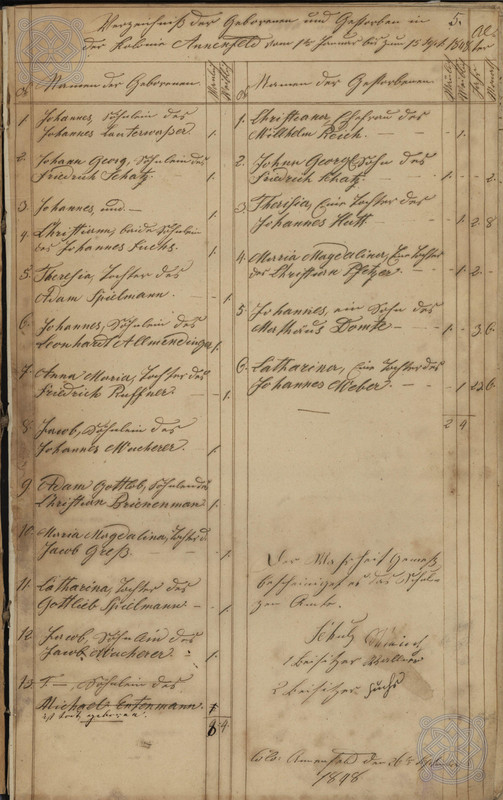 Verzeichniß der Geborenen und Gestorben in
der Kolonie Annenfeld vom 1ten Januar bis zum 15 Sept 1848
5.
Namen der Geborenen
Namen der Gestorbenen
1. Johannes, Söhnlein des
Johannes Lauterwasser 1.
2. Johann Georg, Söhnlein des
Friedrich Schatz. 1.
3. Johannes, und —
4. Christianna, beide
des Johannes Fuchs. 1.
5. Theresia, Tochter des
Adam Spielmann. - 1
6. Johannes, Söhnlein des
Leonhardt Allmendinger 1.
7. Anna Maria, Tochter des
Friedrich Ruffner - 1.
8. Jacob, Söhnlein des
Johannes Wucherer. - 1.
9 Adam Gottlob, Söhnlein des
Christian Brienenman 1.
10. Maria Magdalina, Tochter d.
Jacob Greß - - 1.
11. Catharina, Tochter des
Gottlieb Spielmann - - 1.
12. Jacob, Söhnlein des
Jacob Wucherer - 1.
13. T—, Söhnlein des
Michael Entenmann
ist todt geboren.
8 4
1. Christiana, Ehefrau des
Willhelm Reich. - - 1.
2. Johann Georg, Sohn des
Friedrich Schatz. - 1. - - 2.
3. Theresia, Eine Tochter des
Johannes Hutt - - 1 2 8
4. Maria Magdalina, Eine Tochter
des Christian Pfetzer - - 1 2 -
5 Johannes, ein Sohn des
Mathäus Domke - 1 - 3 6.
6. Catharina, Eine Tochter des
Johannes Weber. - - 1
2 4
Der Wahrheit Gemäß
bescheiniget es das Schul-
zen Amt.
Schulz
1 beisitzer
2 beisitzer Fuchs
Col: Annenfeld den 26 September
1848